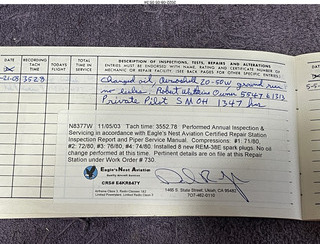 DATE
RECORDING TACH TIME
TODAYS FLIGHT
TOTAL TIME IN SERVICE
DESCRIPTION OF INSPECTIONS, TESTS, REPAIRS AND ALTERATIONS
ENTRIES MUST BE ENDORSED WITH NAME, RATING AND CERTIFICATE NUMBER OF
MECHANIC OR REPAIR FACILITY. (SEE BACK PAGES FOR OTHER SPECIFIC ENTRIES.)
3528 Changed oil, Aeroshell 20-50W ground run
no leaks. Robert Owner
Private Pilot SMOH 1347 hrs
N8377W 11/05/03 Tach time: 3552.78 Performed Annual Inspection &
Servicing in accordance with Eagle's Nest Aviation Certified Repair Station
Inspection Report and Piper Service Manual. Compressions: #1: 71/80,
#2: 72/80, #3: 76/80, #4: 74/80. Installed 8 new REM-38E spark plugs. No oil
change performed at this time. Pertinent details are on file at this Repair
Station under Work Order # 730.
Eagle's Nest Aviation
Quality Aircraft Services
CRS# E4KR847Y
Airframe Class 3, Radio Classes 1&2
Limited Powerplant, Limited Radio Class 3
1485 S. State Street, Ukiah, CA 95482
707-462-0110